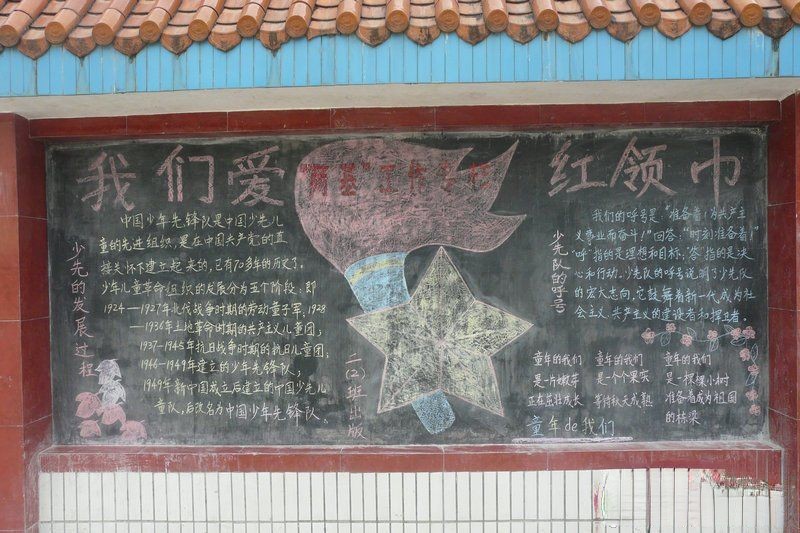 我们爱
红领巾
"两基"工作
少先的发展过程
中国少年先锋队是中国少先儿
童的先进组织,是在中国共产党的直
接关怀下建立起来的,已有70多年的历史了。
少年儿童革命组织的发展分为五个阶段,即
1924—1927年北伐战争时期的劳动童子军,1928
—1936年土地革命时期的共产主义儿童团;
1937-1945年抗日战争时期的抗日儿童团;
1946-1949年建立的少年先锋队;
1949年新中国成立后建立的中国少先儿
童队,后改名为中国少年先锋队。
二(2)班出版
少先队的呼号
我们的呼号是:"准备着!为共产主
义事业而奋斗!"回答:"时刻准备着!"
"呼"指的是理想和目标,"答"指的是决
心和行动。少先队的呼号说明了少先队
的宏大志向,它鼓舞着新一代成为社会
主义共产主义的建设者和捍卫者。
童年的我们
是一片嫩芽
正在茁壮成长
童年的我们
是一个个果实
等待秋天成熟
童年的我们
是一棵棵小树
准备着成为祖国
的栋梁
童年de我们